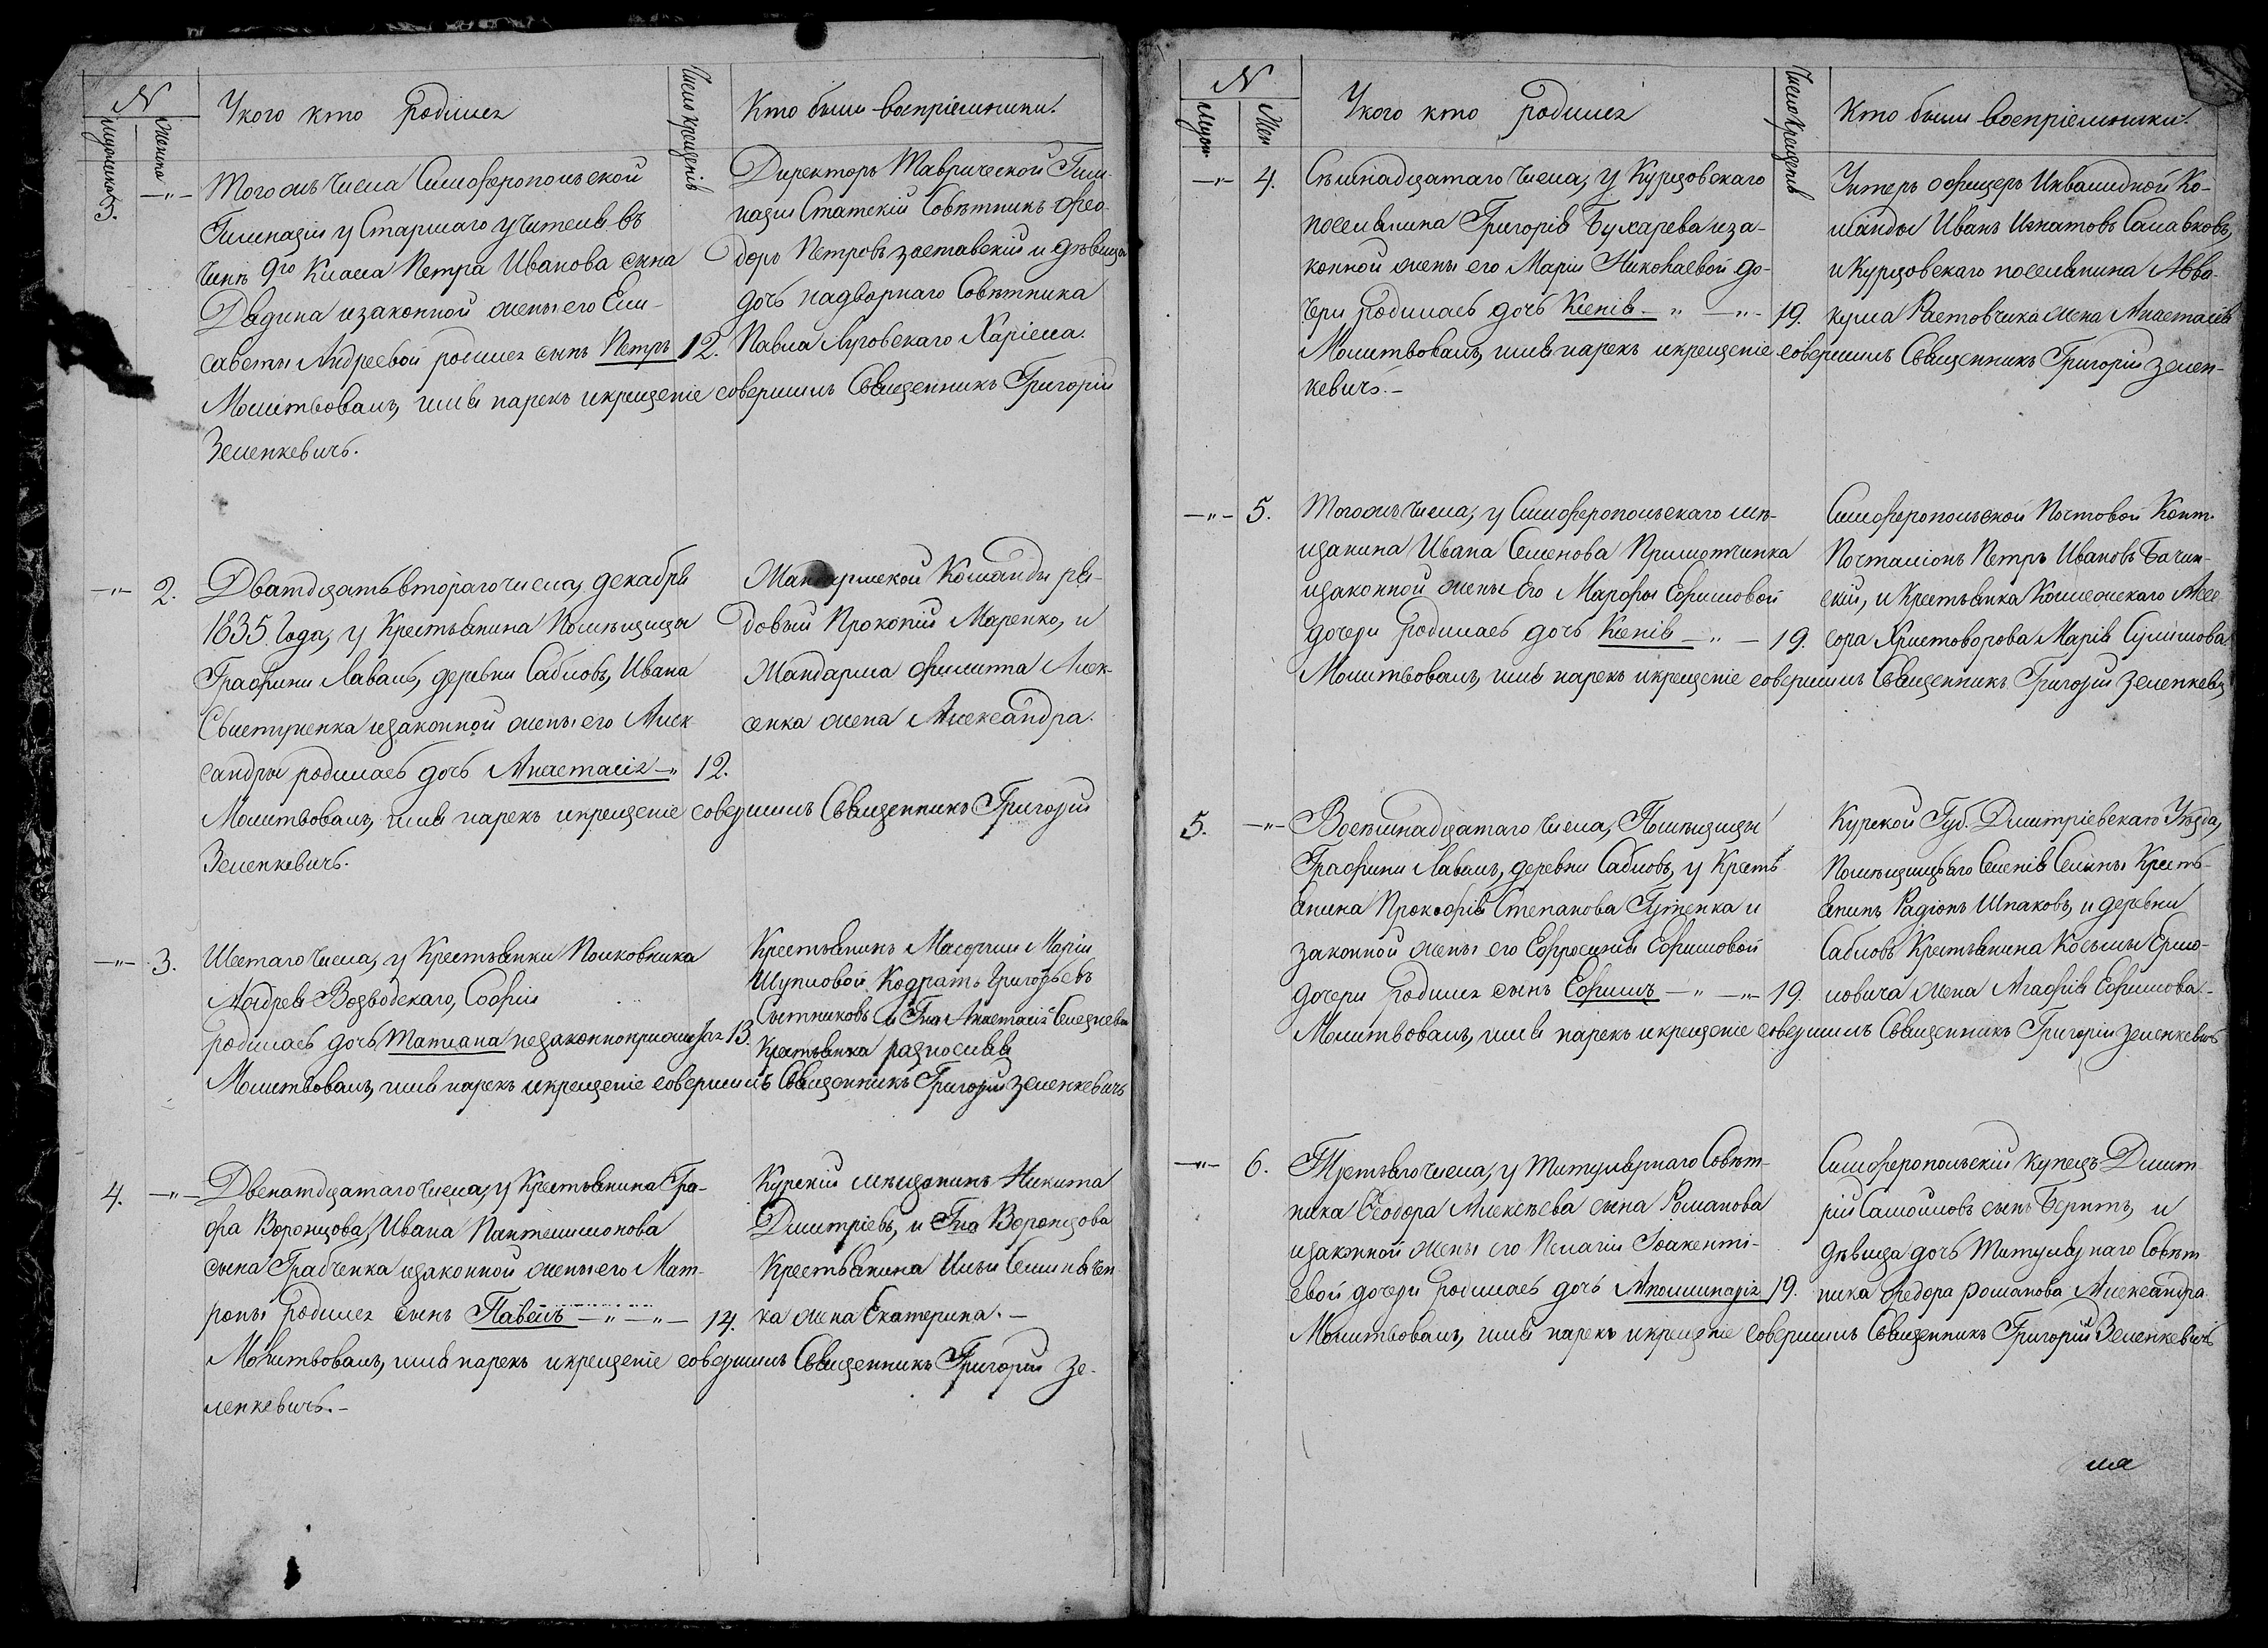 N
мужеска
женска
У кого кто родился
Число крещенія
Кто были воспріемники.
3.
Того жъ числа Симферопольской
Гимназіи у Старшаго учителя въ
чинѣ 9го Класса Петра Иванова сына
Дядина и законной жены его Ели-
саветы Андреевой родился сынъ Петръ 12.
Директоръ Таврической Гим-
назіи Статскій Совѣтникъ Фео-
доръ Петровъ Заставскій и дѣвица
дочь надворнаго Совѣтника
Павла Луговскаго Харіеса.
Молитвовалъ, имя нарекъ и крещеніе совершилъ Священникъ Григорій
Зеленкевичъ.
2.
Дватдцать втораго числа, декабря
1835. Года, у Крестьянина Помѣщицы
Графини Лаваль, деревни Сабловъ, Ивана
Свистуненка и законной жены его Алек
сандры родилась дочь Анастасія 12.
Жандармской Команды ря-
довый Прокопій Маренко, и
Жандарма Филиппа Алек-
сенка жена Александра.
Молитвовалъ, имя нарекъ и крещеніе совершилъ Священникъ Григорій
Зеленкевичъ.
3.
Шестаго числа, у Крестьянки Полковника
Андрея Возводскаго, Софіи
родилась дочь Татіана незаконноприжитая 13.
Крестьянинъ Маіорши Маріи
Шупиовой Кодратъ Григорьевъ
Сытниковъ и Гна Анастасія Селезнева
Крестьянка
Молитвовалъ, имя нарекъ и крещеніе совершилъ Священникъ Григорій Зеленкевичъ
4.
Двенатдцатаго числа, у Крестьянина Гра-
фа Воронцова, Ивана Пантелимонова
сына Грабченка и законной жены его Мат-
роны родился сынъ Павелъ 14.
Курскій мѣщанинъ Никита
Дмитріевъ, и Гна Воронцова
Крестьянина Ильи Семиличен-
ка жена Екатерина.
Молитвовалъ, имя нарекъ и крещеніе совершилъ Священникъ Григорій Зе-
ленкевичъ.
N
Муж
Жен
У кого кто родился
Число Крещенія
Кто были воспріемники.
4.
Семнадцатаго числа, у Курцовскаго
поселянина Григорія Бухарева и за-
конной жены его Маріи Николаевой до-
чери родилась дочь Ксенія 19.
Унтеръ офицеръ Инвалидной Ко-
манды Иванъ Игнатовъ Салавковъ,
и Курцовскаго поселянина Авва-
кума Растовчика жена Анастасія
Молитвовалъ, имя нарекъ и крещеніе совершилъ Священникъ Григорій Зелен-
кевичъ.
5.
Того жъ числа, у Симферопольскаго мѣ-
щанина Ивана Семенова Примотчинка
и законной жены его Марфы Ефимовой
дочери родилась дочь Ксенія 19.
Симферопольской Почтовой Конт.
Почталіонъ Петръ Ивановъ Бачин-
скій, и Крестьянка Коллежскаго Асес
сора Христофорова Марія Сулимова.
Молитвовалъ, имя нарекъ и крещеніе совершилъ Священникъ Григорій Зеленкевичъ
5.
Восемнадцатаго числа, Помѣщицы
Графини Лаваль, деревни Сабловъ, у Кресть-
янина Прокофія Степанова Гутенка и
законной жены его Евфросиніи Ефимовой
дочери родился сынъ Ефимъ 19.
Курской Губ. Дмитріевскаго Уѣзда,
Помѣщицьяго Селенія Семины Кресть-
янинъ Радіонъ Шпаковъ, и деревни
Сабловъ Крестьянина Косьмы Ермо-
ловича жена Агафія Ефимова.
Молитвовалъ, имя нарекъ и крещеніе совершилъ Священникъ Григорій Зеленкевичъ
6.
Третьяго числа, у Титулярнаго Совѣт-
ника Ѳеодора Алексѣева сына Романова
и законной жены его Пелагіи Іоакенті-
евой дочери родилась дочь Аполлинарія 19.
Симферопольскій купецъ Дмит-
рій Самойловъ сынъ Бернтъ, и
дѣвица дочь Титулярнаго Совѣт
ника Федора Романова Александра.
Молитвовалъ, имя нарекъ и крещеніе совершилъ Священникъ Григорій Зеленкевичъ